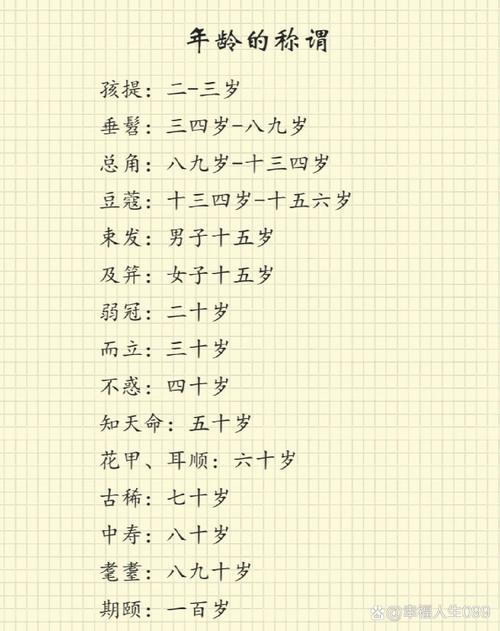 年龄的称谓
孩提：二-三岁
垂髫：三四岁-八九岁
总角：八九岁-十三四岁
豆蔻：十三四岁-十五六岁
束发：男子十五岁
及笄：女子十五岁
弱冠：二十岁
而立：三十岁
不惑：四十岁
知天命：五十岁
花甲、耳顺：六十岁
古稀：七十岁
中寿：八十岁
耄耋：八九十岁
期颐：一百岁
@幸福人生099